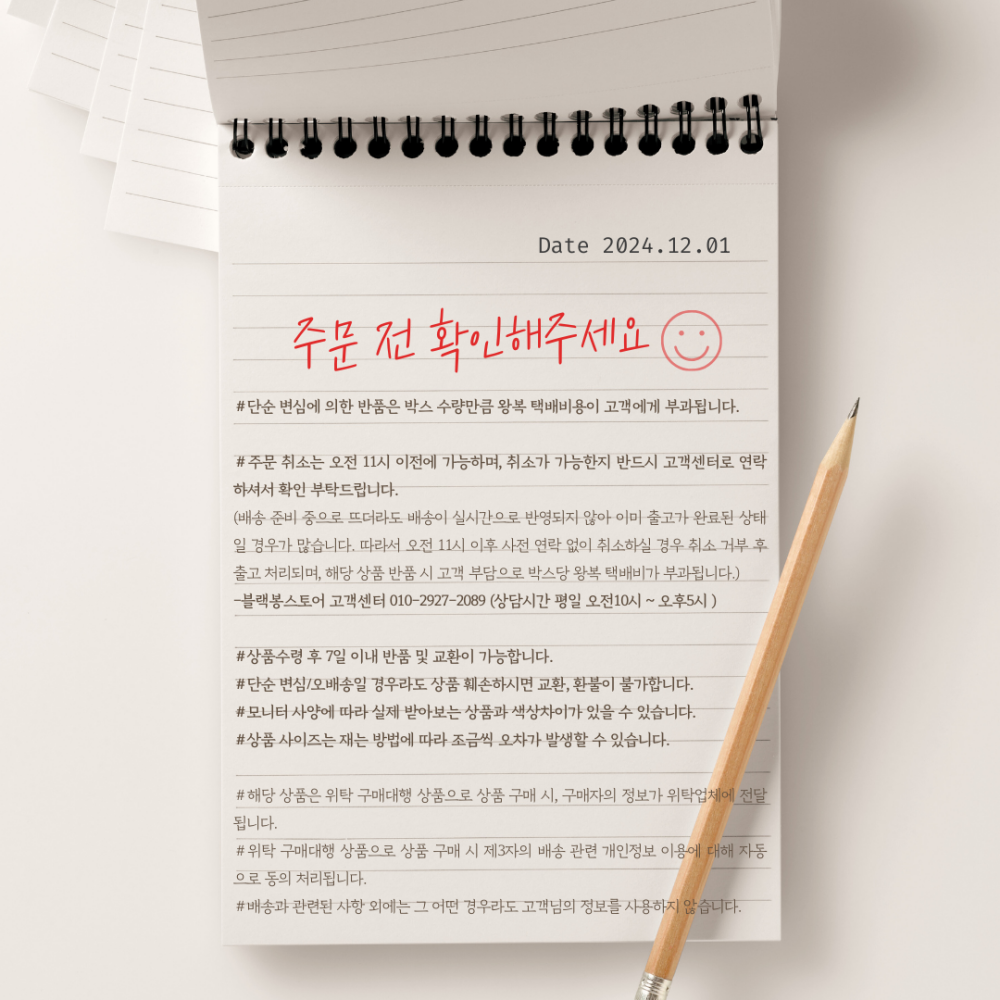 Date 2024.12.01
주문 전 확인해주세요
#단순 변심에 의한 반품은 박스 수량만큼 왕복 택배비용이 고객에게 부과됩니다.
#주문 취소는 오전 11시 이전에 가능하며, 취소가 가능한지 반드시 고객센터로 연락
하셔서 확인 부탁드립니다.
(배송 준비 중으로 뜨더라도 배송이 실시간으로 반영되지 않아 이미 출고가 완료된 상태
일 경우가 많습니다. 따라서 오전 11시 이후 사전 연락 없이 취소하실 경우 취소 거부 후
출고 처리되며, 해당 상품 반품 시 고객 부담으로 박스당 왕복 택배비가 부과됩니다.)
-블랙봉스토어 고객센터 010-2927-2089 (상담시간 평일 오전10시 ~ 오후5시 )
#상품수령 후 7일 이내 반품 및 교환이 가능합니다.
#단순 변심/오배송일 경우라도 상품 훼손하시면 교환, 환불이 불가합니다.
#모니터 사양에 따라 실제 받아보는 상품과 색상차이가 있을 수 있습니다.
#상품 사이즈는 재는 방법에 따라 조금씩 오차가 발생할 수 있습니다.
#해당 상품은 위탁 구매대행 상품으로 상품 구매 시, 구매자의 정보가 위탁업체에 전달
됩니다.
#위탁 구매대행 상품으로 상품 구매 시 제3자의 배송 관련 개인정보 이용에 대해 자동
으로 동의 처리됩니다.
#배송과 관련된 사항 외에는 그 어떤 경우라도 고객님의 정보를 사용하지 않습니다.